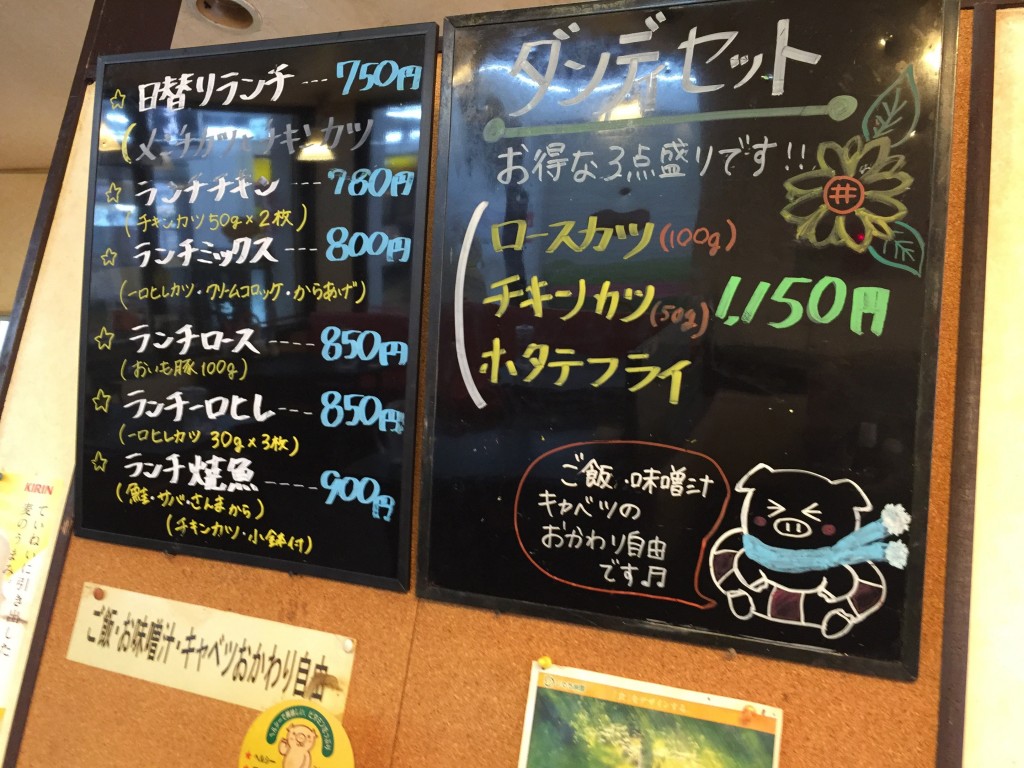 日替りランチ---750円
(メンチカツとチキンカツ
ランチチキン---780円
(チキンカツ50g×2枚)
ランチミックス---800円
(一口ヒレカツ・クリームコロッケ・からあげ)
ランチロース---850円
(おいも豚100g)
ランチ一口ヒレ---850円
(一口ヒレカツ 30g×3枚)
ランチ焼魚-----900円
(鮭・サバ・さんまから)
(チキンカツ・小鉢付)
ダンディセット
お得な3点盛りです!!
井
ロースカツ(100g)
チキンカツ(50g) 1,150円
ホタテフライ
ご飯・味噌汁
キャベツの
おかわり自由
です♫
KIRIN
ていねいに引き出した
麦のうまみ
ご飯・お味噌汁・キャベツおかわり自由
ヘルシー